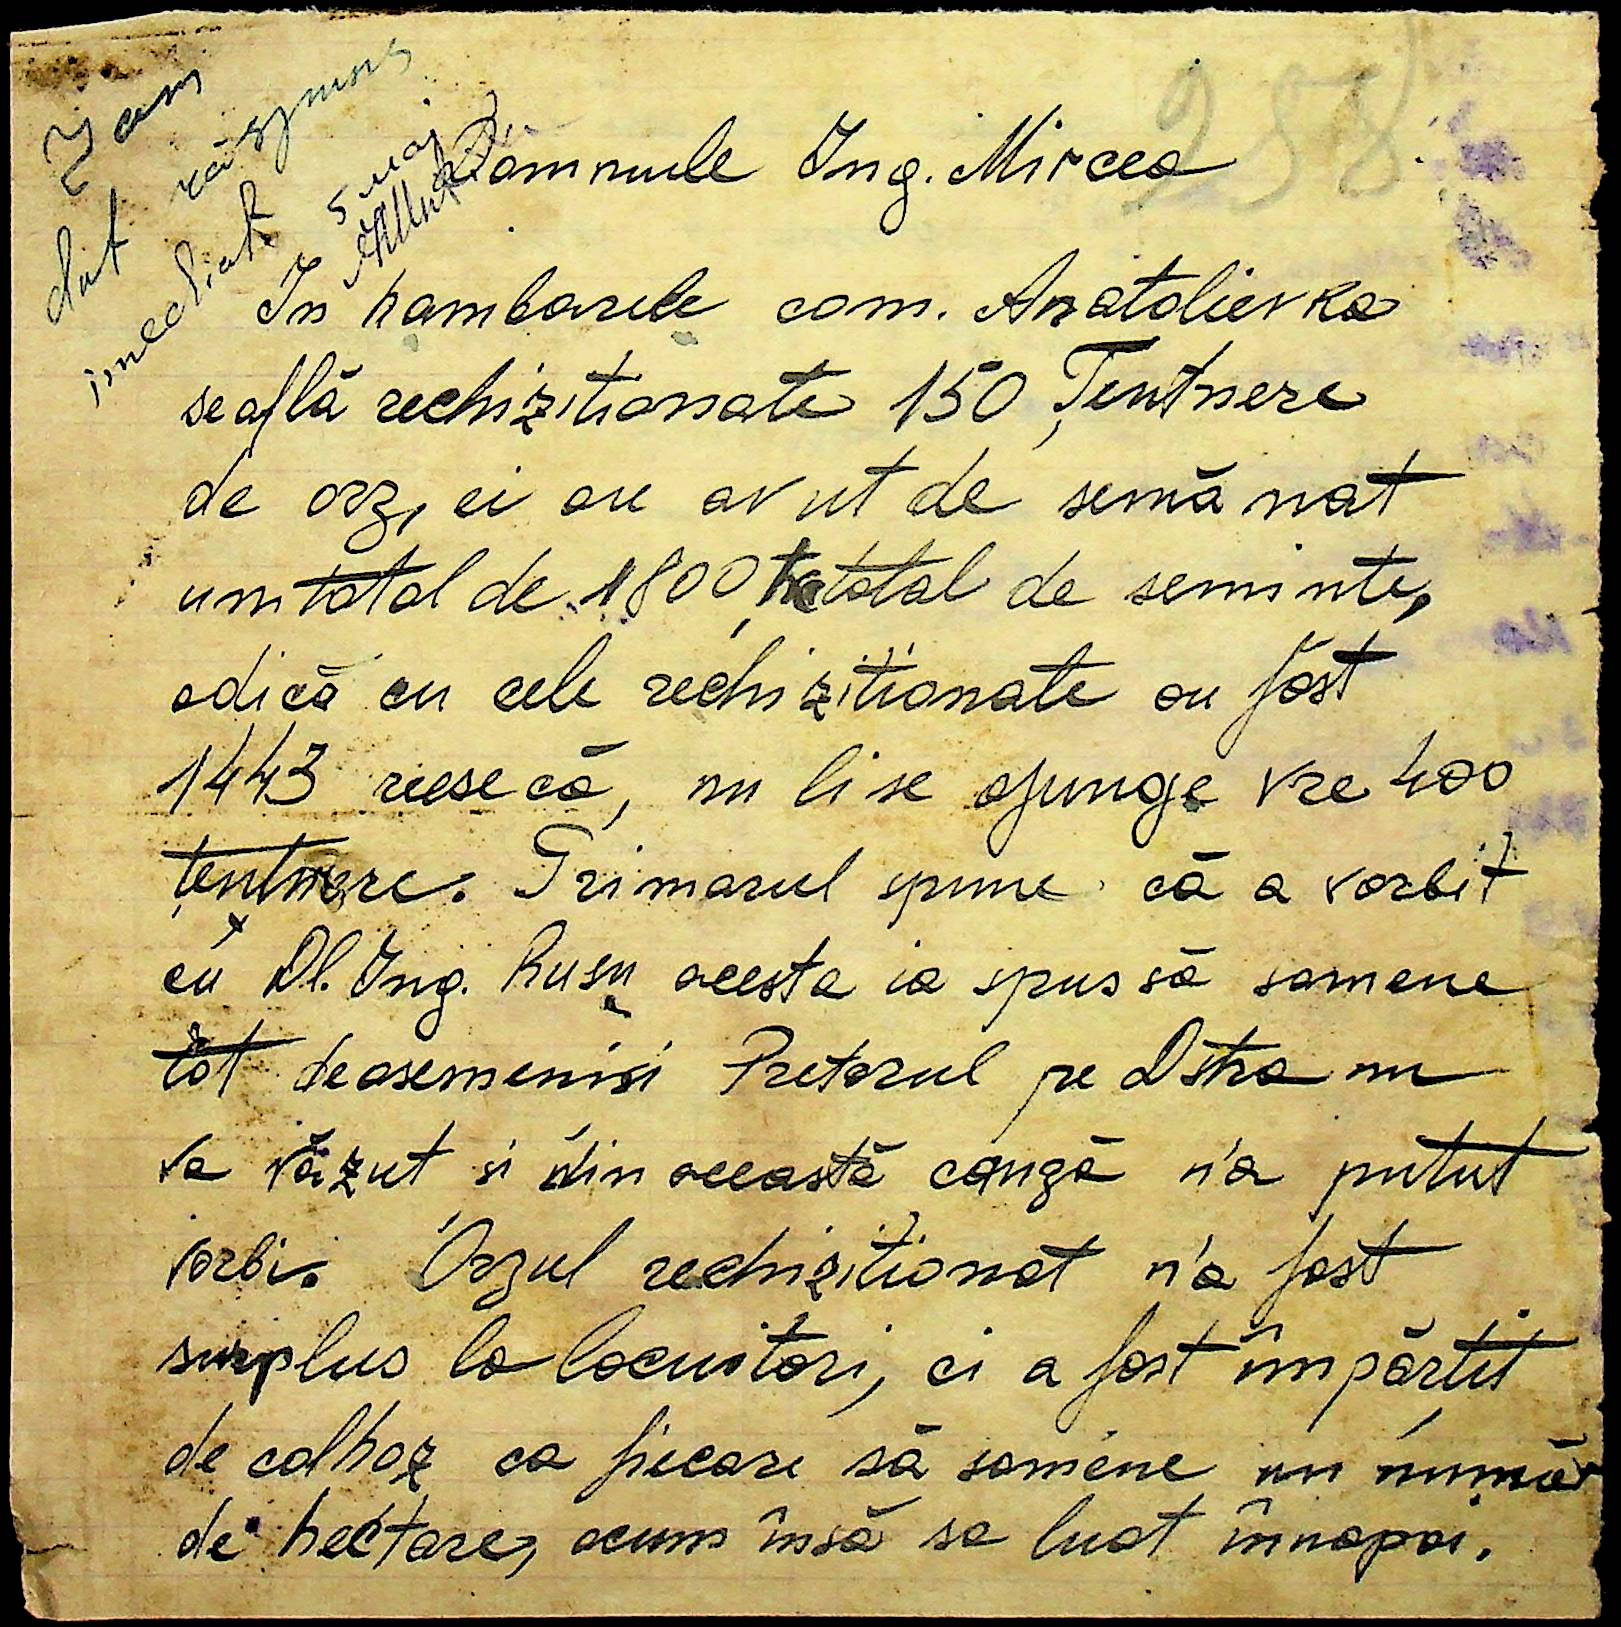 I am
dat răspuns
imediat
5 mai
258
Domnule Ing. Mircea
In hambarele com. Anatolievka
se află rechiziționate 150 Țentnere
de orz, ei au avut de semănat
un total de 1800 ha total de seminte,
adică cu cele rechizitionate au fost
1443 reese că, nu li se ajunge vre 400
țentnere. Primarul spune că a vorbit
cu Dl. Ing. Rusu acesta ia spus să samene
tot deasemeni si Pretorul pe Dstra nu
va văzut si din această cauză n'a putut
vorbi. Orzul rechiziționat n'a fost
surplus la locuitori, ci a fost împărtit
de colhoz ca fiecare să samene un număr
de hectare, acum însă sa luat înnapoi.